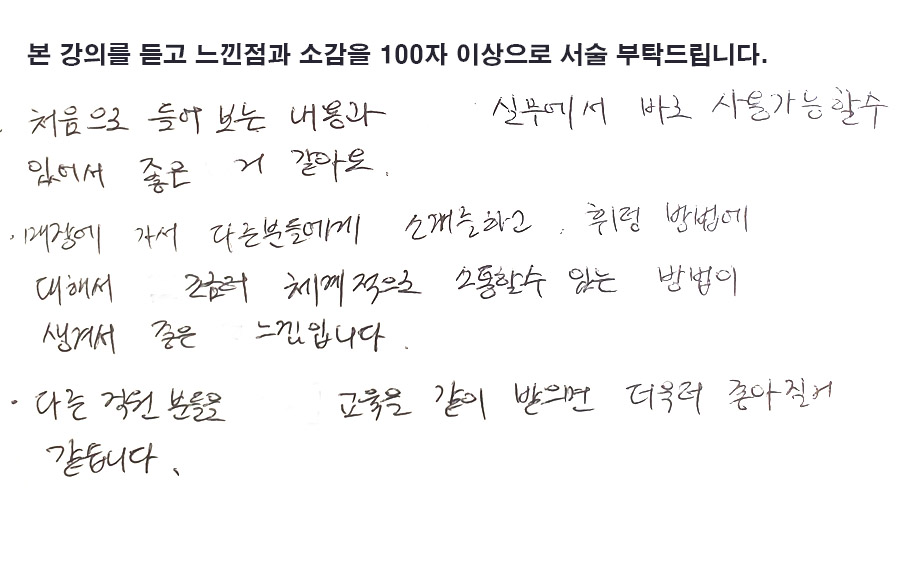 본 강의를 듣고 느낀점과 소감을 100자 이상으로 서술 부탁드립니다.
처음으로 들어 보는 내용과 실무에서 바로 사용가능할수
있어서 좋은 거 같아요.
· 매장에 가서 다른분들에게 소개를하고. 휘령 방법에
대해서 조금더 체계적으로 소통할수 있는 방법이
생겨서 좋은 느낌입니다.
· 다른 직원 분들을 교육을 같이 받으면 더욱더 좋아질거
같습니다.